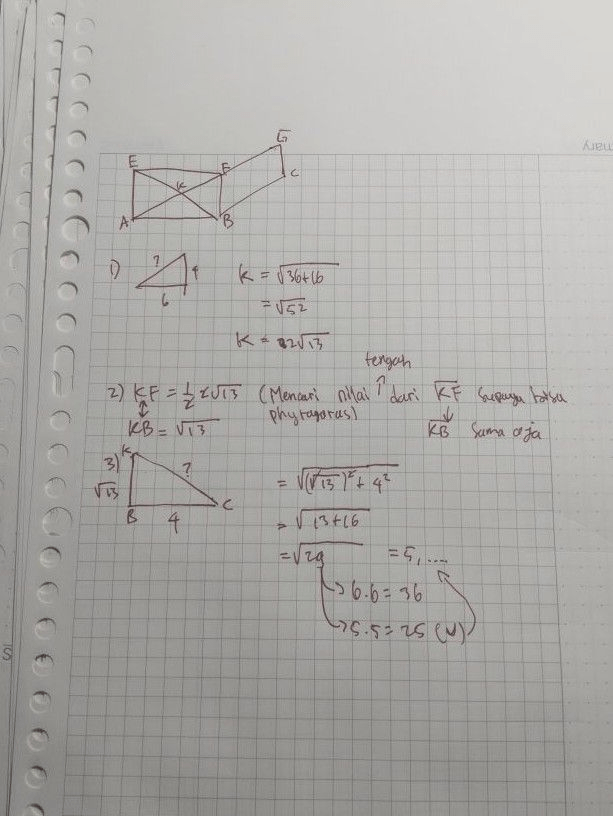 E
F
G
K
C
A
B
1)
?
4
6
K = √36+16
= √52
K = 2√13
tengah
2) KF = ½ 2√13 (Mencari nilai dari KF supaya bisa
phytagoras)
KB = √13
KB sama aja
3)
K
√13
?
B
4
C
= √(√13)² + 4²
= √13+16
= √29 = 5, ....
→ 6.6 = 36
→ 5.5 = 25 (v)